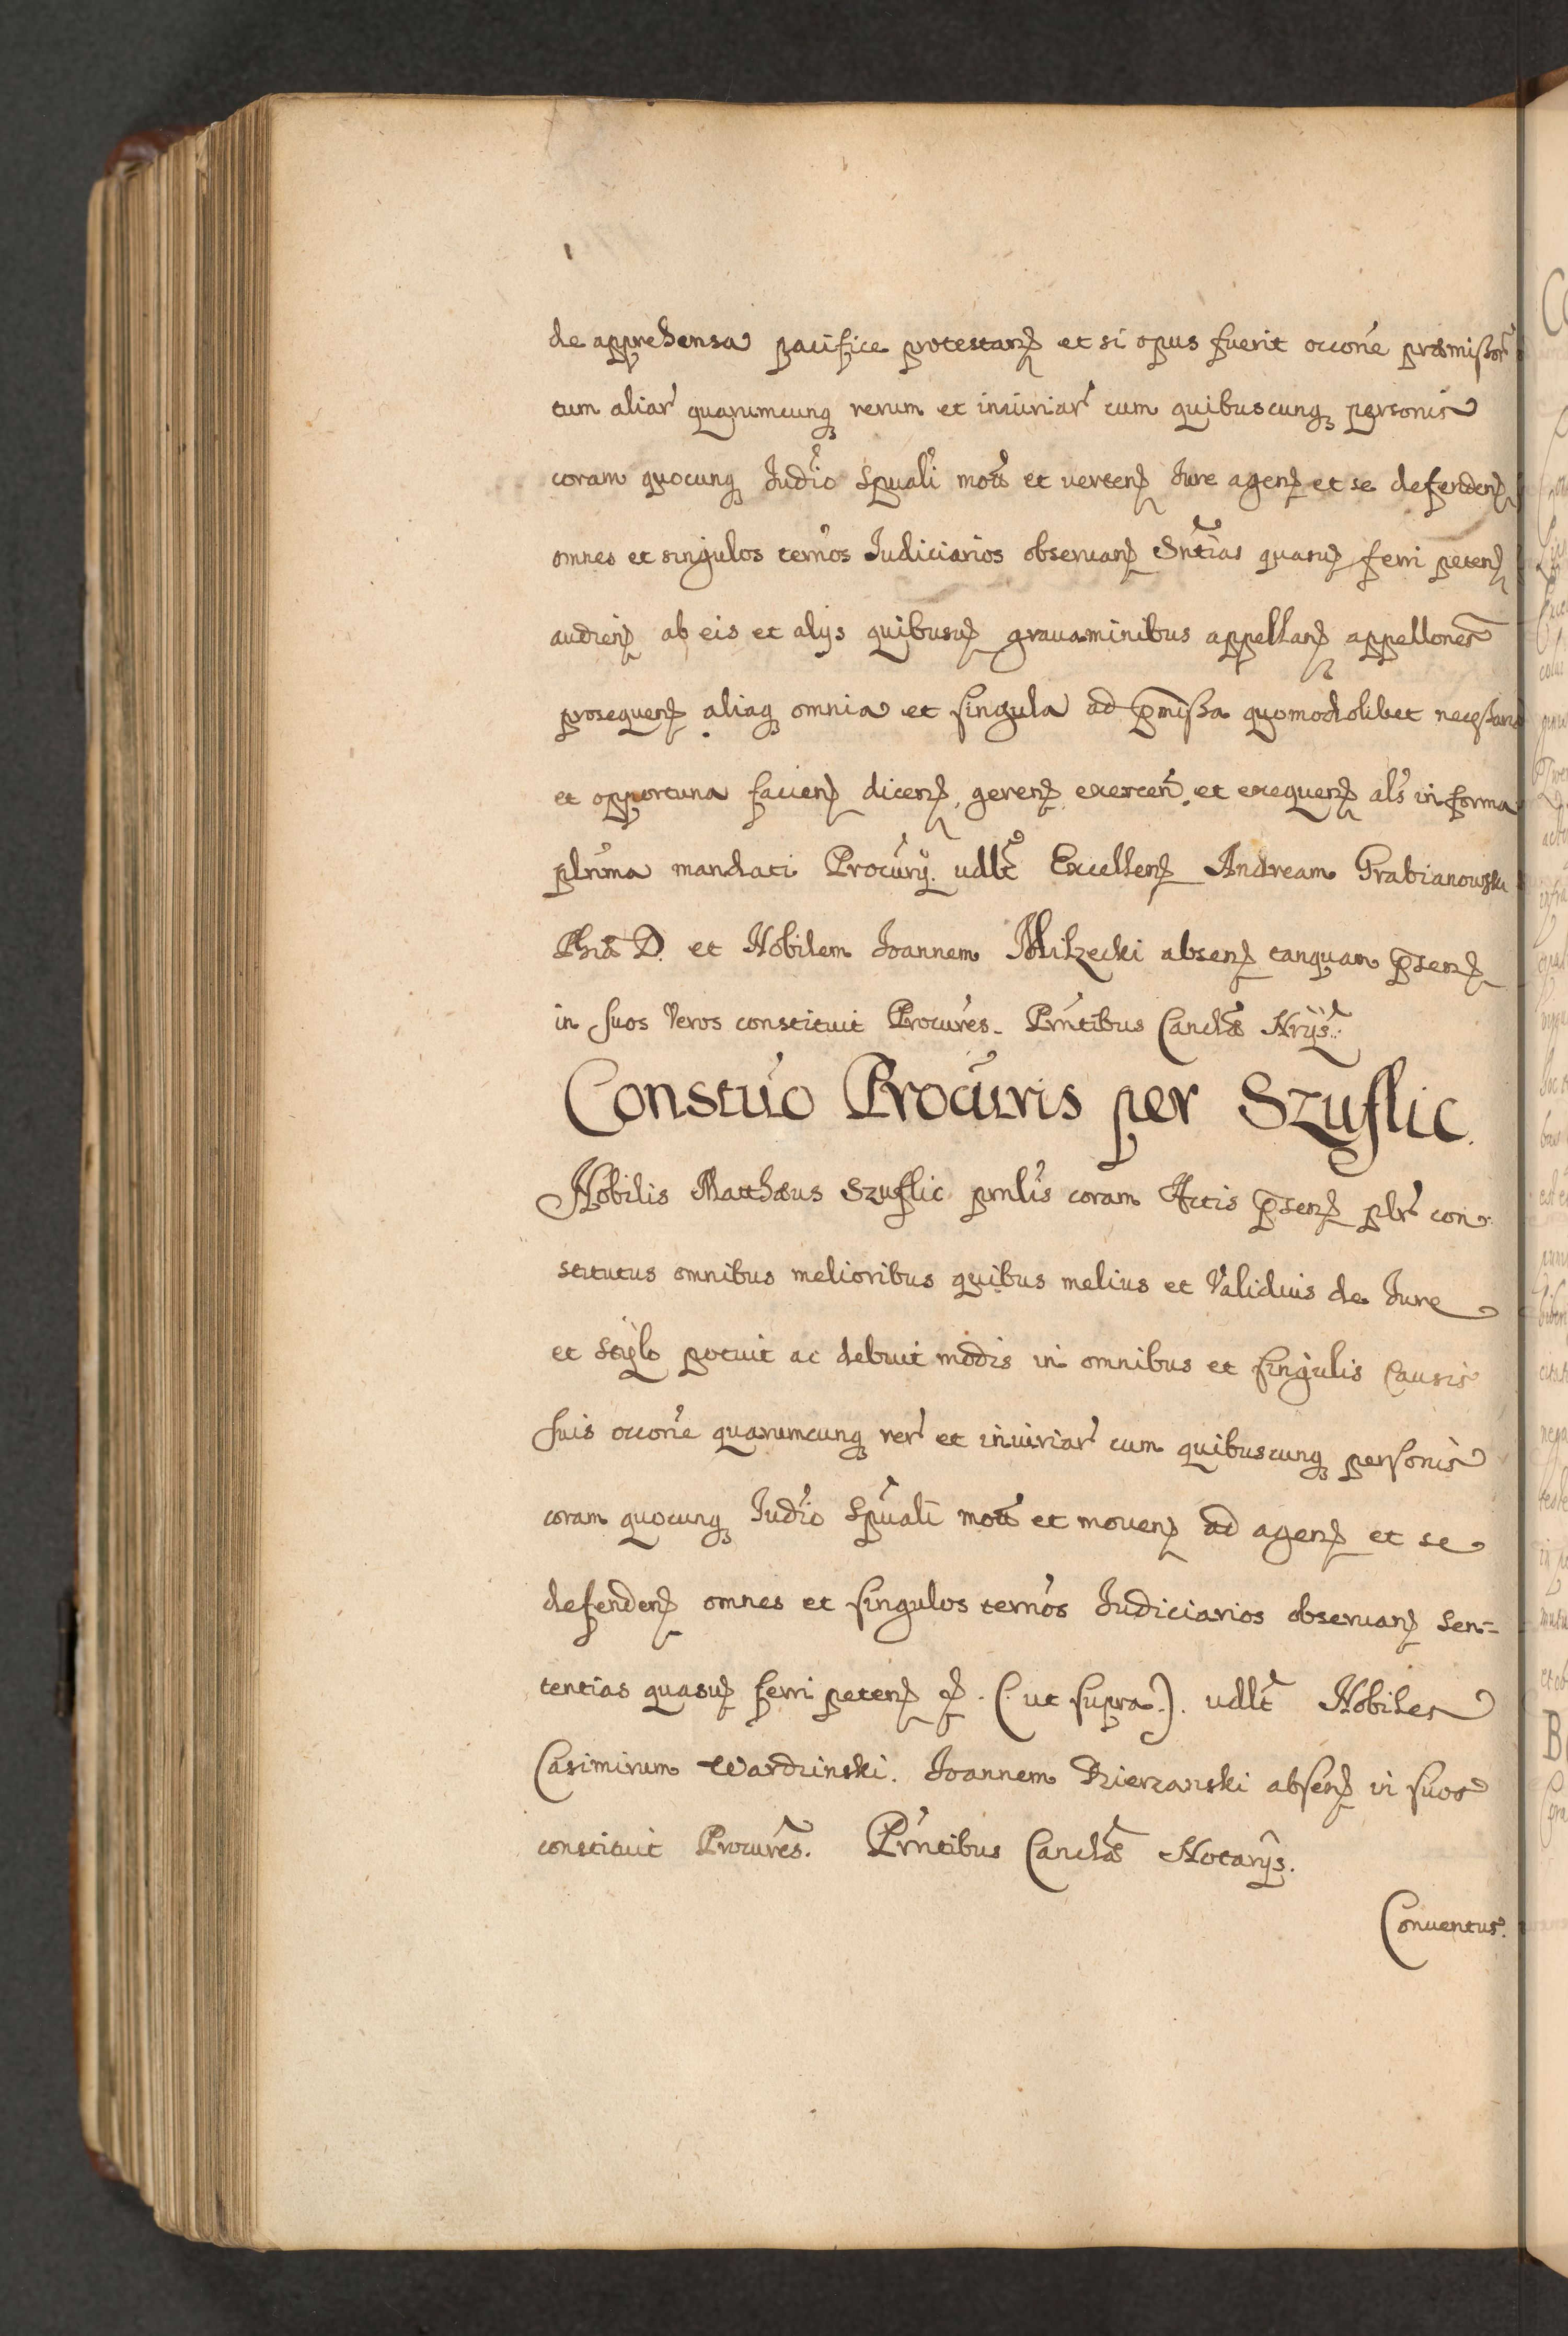 de apprehensa pacifice protestanȝ et si opus fuerit occone præmissor
tum aliar quarumcunqȝ rerum et iniuriar cum quibuscunqȝ personis
coram quocunqȝ Iudio Spuali mots et vertenȝ Iure agenȝ et se defendenȝ
omnes et singulos termos Iudiciarios obseruanȝ Sntias quasuȝ ferri petenȝ
audienȝ ab eis et alijs quibusuȝ grauaminibus appellanȝ appellones
prosequenȝ aliaqȝ omnia et singula ad pmissa quomodolibet necessaria
et opportuna facienȝ dicenȝ, gerenȝ exercen et exequenȝ als in forma
plrma mandati Procurij. udlt Excellenȝ Andream Grabianowski
Phiæ D. et Nobilem Ioannem Milzecki absenȝ tanquam psenȝ
in suos Veros constituit Procures. Prntibus Canclæ Nrijs.
Constuo Procuris per Szuflic.
Nobilis Matthæus Szuflic prnlis coram Actis psenȝ plr con-
stitutus omnibus melioribus quibus melius et Validius de Iure
et stylo potuit ac debuit modis in omnibus et singulis Causis
suis occone quarumcunqȝ rer et iniuriar cum quibuscunqȝ personis
coram quocunqȝ Iudio Spuali mots et mouenȝ ad agenȝ et se
defendenȝ omnes et singulos termos Iudiciarios obseruanȝ sen=
tentias quasuȝ ferri petenȝ &. (: ut supra.). udlt Nobiles
Casimirum Wardzinski. Ioannem Dzierzanski absenȝ in suos
constituit Procures. Prntibus Canclæ Notarijs.
Conuentus.